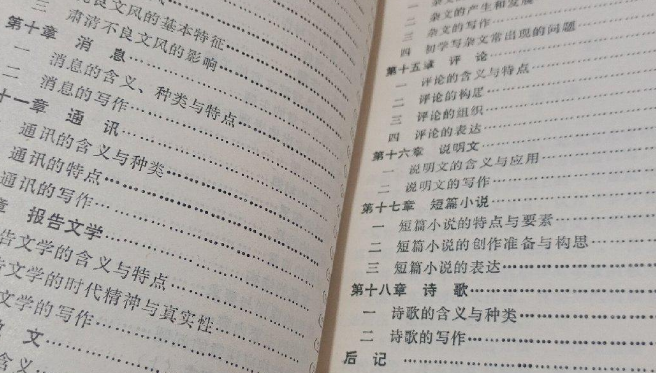 良文风的基本特征
三 肃清不良文风的影响
第十章 消 息
一 消息的含义、种类与特点
二 消息的写作
十一章 通 讯
通讯的含义与种类
通讯的特点
通讯的写作
章 报告文学
告文学的含义与特点
文学的时代精神与真实性
文学的写作
文
含义
二 杂文的产生和发展
三 杂文的写作
四 初学写杂文常出现的问题
第十五章 评 论
一 评论的含义与特点
二 评论的构思
三 评论的组织
四 评论的表达
第十六章 说明文
一 说明文的含义与应用
二 说明文的写作
第十七章 短篇小说
一 短篇小说的特点与要素
二 短篇小说的创作准备与构思
三 短篇小说的表达
第十八章 诗 歌
一 诗歌的含义与种类
二 诗歌的写作
后 记